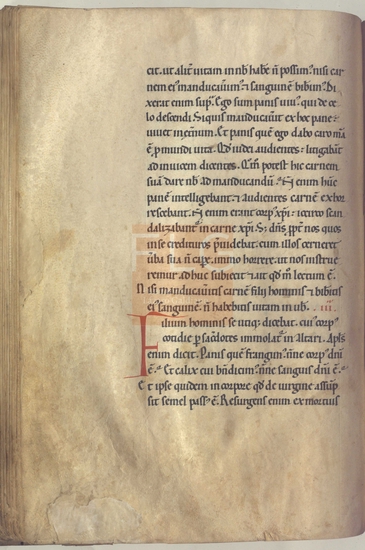 cit. ut alit̄ uitam in nob̄ habē n̄ possim᷒ nisi car
nem ei᷒ manducauim᷒ ⁊ sanguinē bibim᷒. Di
xerat enim sup̄. Ego sum panis uiu᷒ qui de ce
lo descendi. Si quis manducauit̄ ex hoc pane
uiuet in et̄num. Et panis quē ego dabo caro m̄a
ē p̄ mundi uita. Qd̄ iudei audientes: litigabāt
ad inuicem dicentes. Qm̄ potest hic carnem
suā dare nob̄ ad manducandū. Si enim hūc
panē intelligebant: ⁊ audientes carnē exhor
rescebant. Si enim erant corp᷒ xp̄i: ⁊ cetero scan
dalizabant᷒ in carne xp̄i. S; dn̄s ꝓpt̄ nos quos
in se credituros p̄uidebat. cum illos cerneret
uba sua n̄ cap̄e. immo horrere. ut nos instrue
remur. adhuc subiecit ⁊ ait qd̄ m̄ lectum ē.
Nisi manducauitis carnē filii hominis ⁊ bibitis
ei᷒ sanguinē. n̄ habebitis uitam in uob̄. iiii.
Filium hominis se utiq; dicebat. cui᷒ corp᷒
cotidie p̄ sacdotes immolat᷒ in altari. Apl̄s
enim dicit. Panis quē frangim᷒ n̄ne corp᷒ dn̄i
ē. Et calix cui bn̄dicim᷒ n̄ne sanguis dn̄i ē.
Et ipse quidem in corpore qd̄ de uirgine assūp
sit semel pass᷒ ē. Resurgens enim ex mortuis